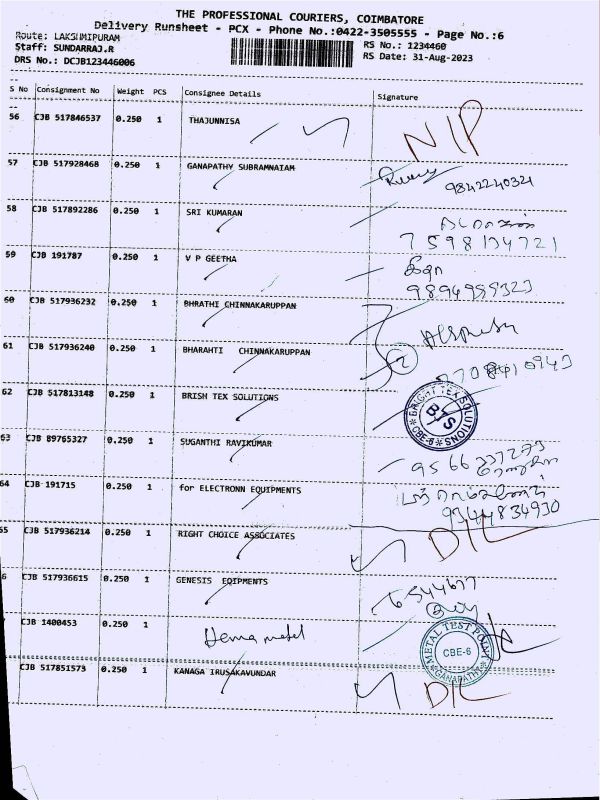 THE PROFESSIONAL COURIERS, COIMBATORE
Delivery Runsheet - PCX - Phone No.:0422-3505555 - Page No.:6
Route: LAKSHMIPURAM
Staff: SUNDARRAJ.R
RS No.: 1234460
DRS No.: DCJB123446006
RS Date: 31-Aug-2023
S No Consignment No Weight PCS Consignee Details Signature
56 CJB 517846537 0.250 1 THAJUNNISA
57 CJB 517928468 0.250 1 GANAPATHY SUBRAMNAIAM
9842240321
58 CJB 517892286 0.250 1 SRI KUMARAN
7598134721
59 CJB 191787 0.250 1 V P GEETHA கீதா
60 CJB 517936232 0.250 1 BHRATHI CHINNAKARUPPAN
61 CJB 517936240 0.250 1 BHARAHTI CHINNAKARUPPAN 2
62 CJB 517813148 0.250 1 BRISH TEX SOLUTIONS BRIGHT TEX SOLUTIONS BTS CBE-6
63 CJB 89765327 0.250 1 SUGANTHI RAVIKUMAR
64 CJB 191715 0.250 1 for ELECTRONN EQUIPMENTS
9344834930
65 CJB 517936214 0.250 1 RIGHT CHOICE ASSOCIATES D/L
6 CJB 517936615 0.250 1 GENESIS EQIPMENTS
6544617
CJB 1400453 0.250 1 Hema metel METAL TEST POINT CBE-6 GANAPATHY
CJB 517851573 0.250 1 KANAGA IRUSAKAVUNDAR D/L